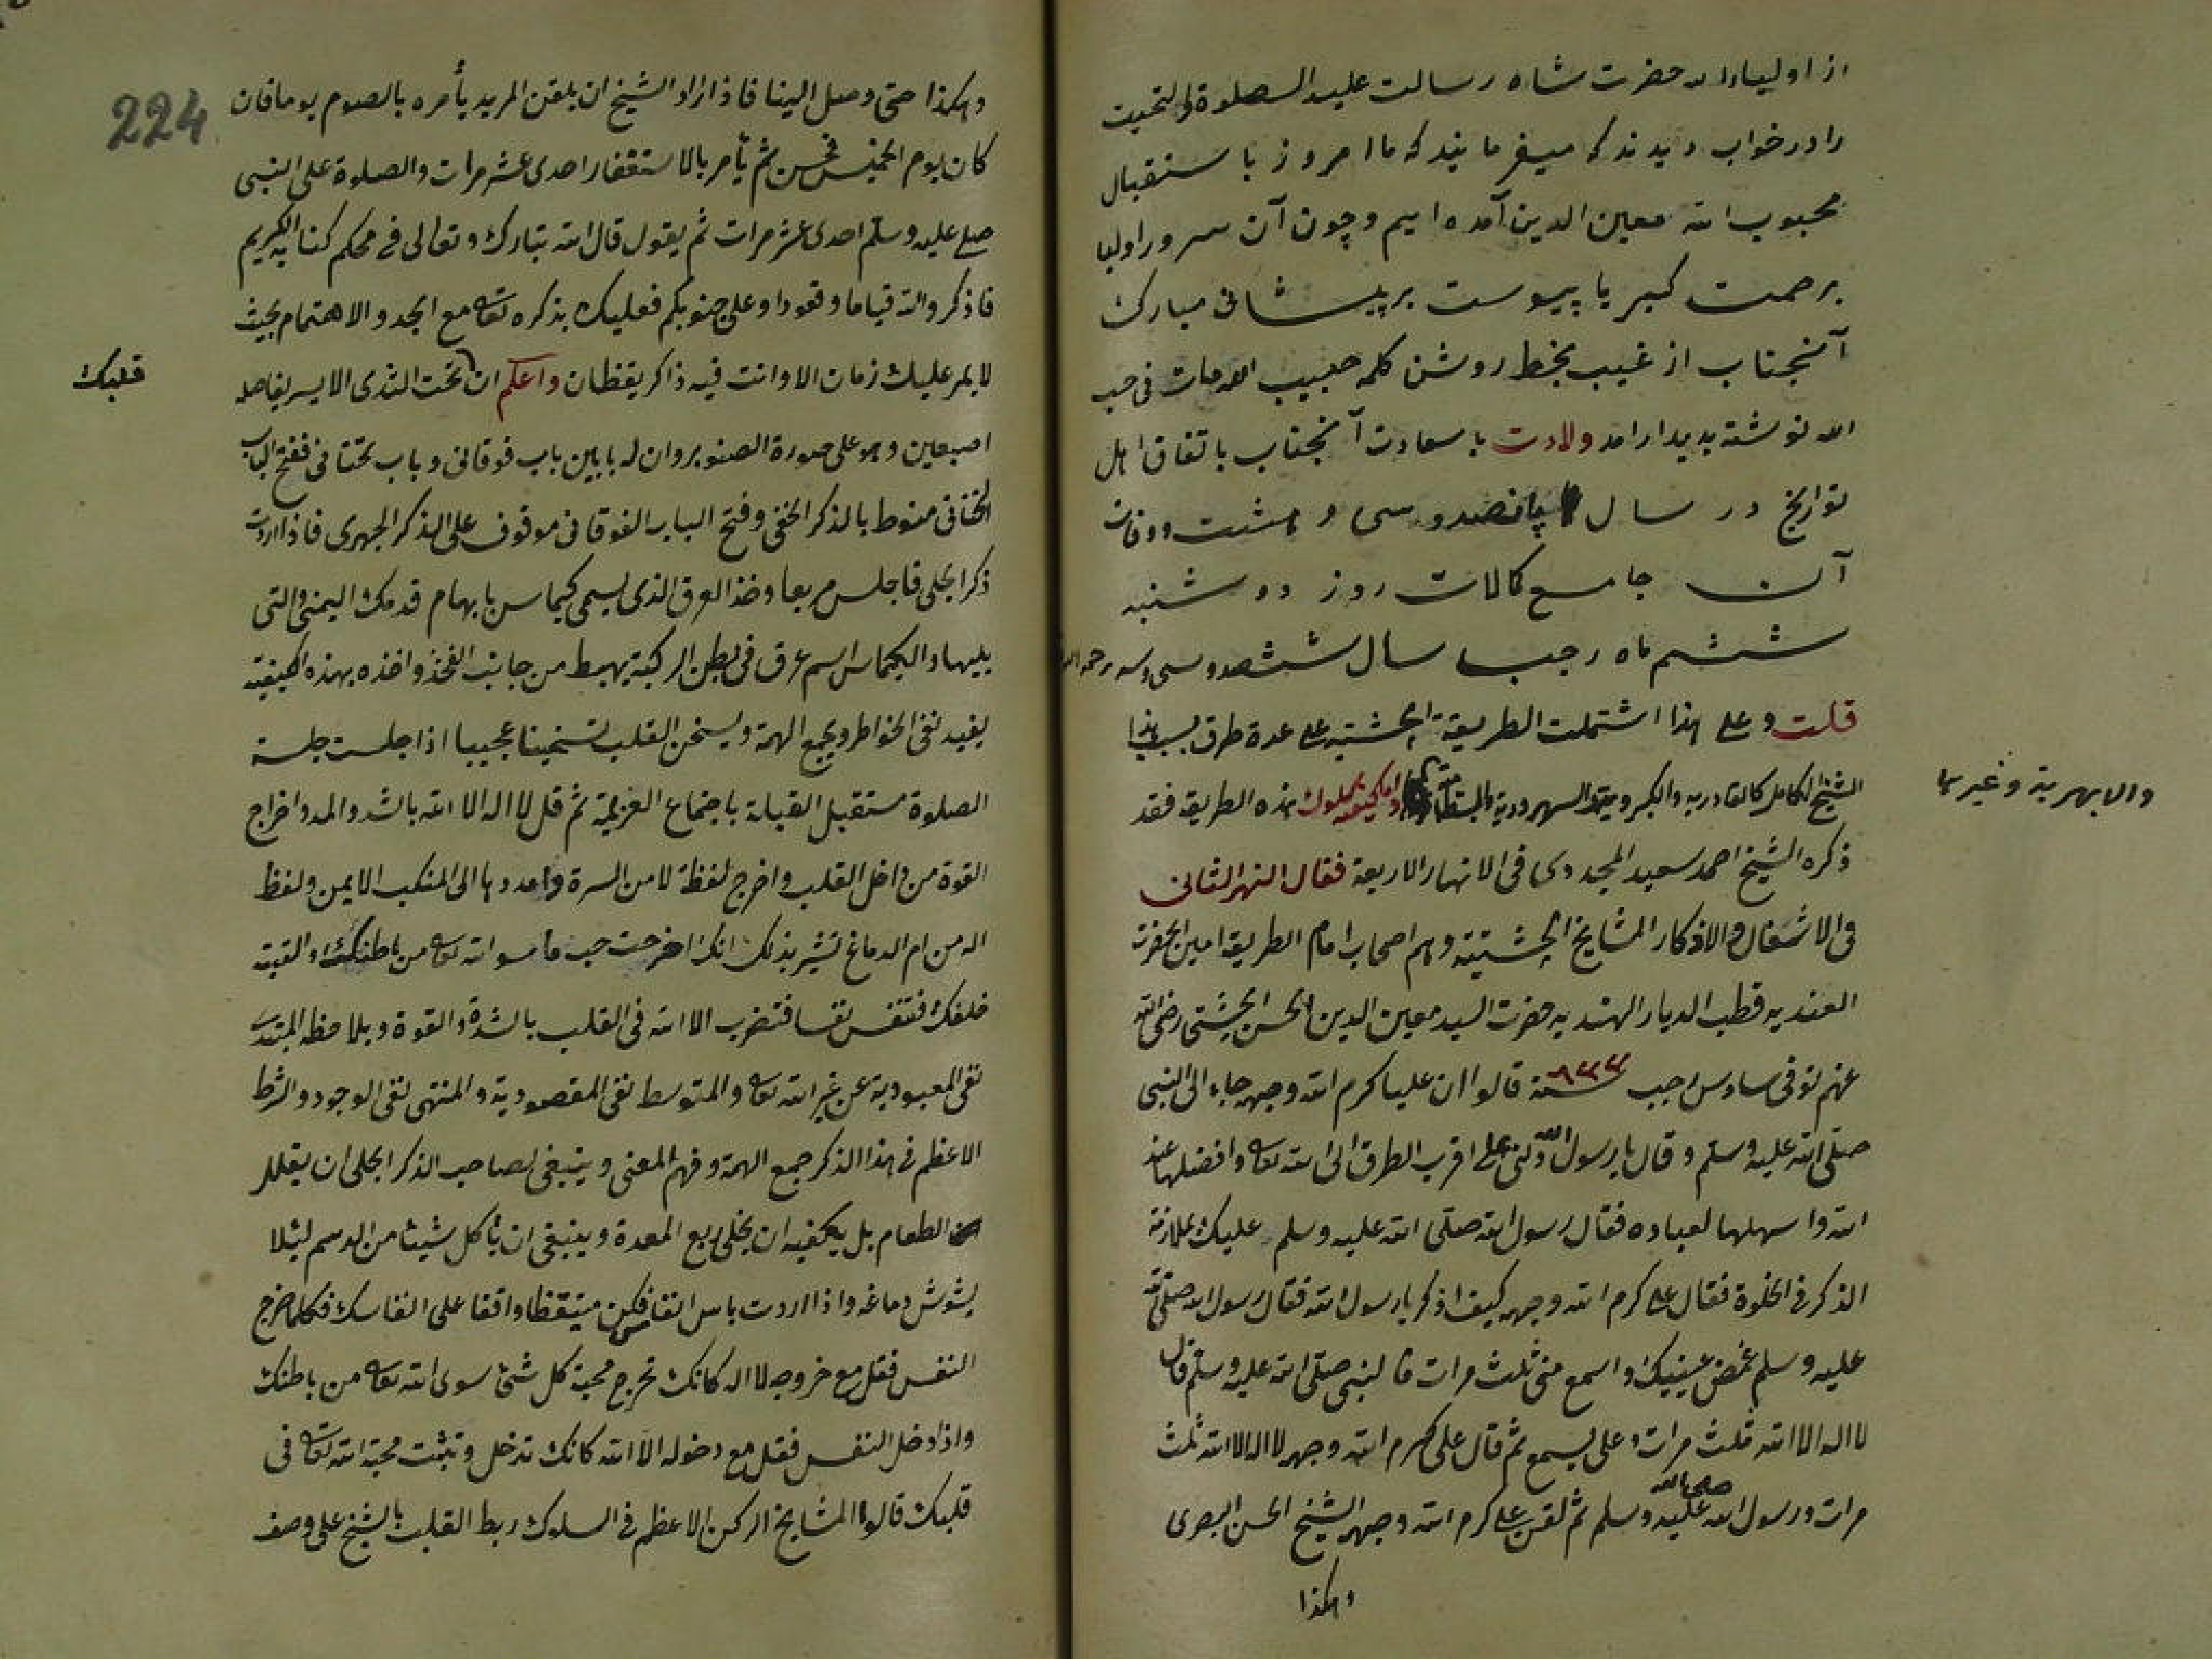 از اولیاء الله حضرت شاه رسالت علیه الصلوة و التحیت
را در خواب دیدند که میفرمایند که ما امروز با ستقبال
محبوب الله معین الدین آمده ایم و چون آن سرور اولیا
برحمت کبریا پیوست بر پیشانی مبارک
آنجناب از غیب بخط روشن کلمه حبیب الله مات فی حب
الله نوشته پدیدار امد ولادت با سعادت آنجناب باتفاق اهل
تواریخ در سال پانصد و سی و هشت و وفات
آن جامع کمالات روز دو شنبه
ششم ماه رجب سال ششصد و سی و سه رحمه الله
قلت و علی هذا اشتملت الطریقة الچشتیه علی عدة طرق بسبب هذا
الشیخ الکامل کالقادریه والکبرویه والسهروردیة واما کیفیة سلوک هذه الطریقه فقد
والابهریة وغیرها
ذکره الشیخ احمد سعید المجددی فی الانهار الاربعة فقال النهر الثانی
فی الاشغال والاذکار المشایخ الچشتیة وهم اصحاب امام الطریقة امین الحضرت
العندیه قطب الدیار الهندیه حضرت السید معین الدین الحسن الچشتی رضی الله
عنهم توفی سادس رجب سنة ٦٣٣ قالوا ان علیا کرم الله وجهه جاء الی النبی
صلی الله علیه وسلم وقال یا رسول الله دلنی علی اقرب الطرق الی الله تعالی وافضلها عند
الله واسهلها لعباده فقال رسول الله صلی الله علیه وسلم علیک بملازمة
الذکر فی الخلوة فقال علی کرم الله وجهه کیف اذکر یا رسول الله فقال رسول الله صلی الله
علیه وسلم غمض عینیک واسمع منی ثلث مرات فالنبی صلی الله علیه وسلم قال
لا اله الا الله ثلث مرات وعلی یسمع ثم قال علی کرم الله وجهه لا اله الا الله ثلث
مرات ورسول الله صلی الله علیه وسلم ثم لقن علی کرم الله وجهه الشیخ الحسن البصری
وهکذا
224
وهکذا حتی وصل الینا فاذا اراد الشیخ ان یلقن المرید یأمره بالصوم یوما فان
کان یوم الخمیس فحسن ثم یأمر بالاستغفار احدی عشر مرات والصلوة علی النبی
صلی علیه وسلم احدی عشر مرات ثم یقول قال الله تبارک وتعالی فی محکم کتابه الکریم
فاذکروا الله قیاما وقعودا وعلی جنوبکم فعلیک بذکره تعالی مع الجد والاهتمام بحیث
لا یمر علیک زمان الا وانت فیه ذاکر یقظان واعلم ان تحت الثدی الایسر بفاصله
قلبک
اصبعین وهو علی صورة الصنوبر وان له بابین باب فوقانی وباب تحتانی ففتح الباب
التحتانی منوط بالذکر الخفی وفتح الباب الفوقانی موقوف علی الذکر الجهری فاذا اردت
ذکر الجلی فاجلس مربعا وخذ العرق الذی یسمی کیماس بابهام قدمک الیمنی والتی
یلیها والکیماس اسم عرق فی بطن الرکبة یهبط من جانب الفخذ واخذه بهذه الکیفیة
یفید نفی الخواطر ویجمع الهمة ویسخن القلب تسخینا عجیبا اذا جلست جلسة
الصلوة مستقبل القبلة باجتماع العزیمة ثم قل لا اله الا الله بالشد والمد واخراج
القوة من داخل القلب واخرج لفظة لا من السرة وامددها الی المنکب الایمن ولفظ
اله من ام الدماغ تشیر بذلک انک اخرجت حب ما سوا الله تعالی من باطنک والقیته
خلفک فتنفس نفسا فتضرب الا الله فی القلب بالشدة والقوة ویلاحظ المبتدی
نفی المعبودیة عن غیر الله تعالی والمتوسط نفی المقصودیة والمنتهی نفی الوجود والشرط
الاعظم فی هذا الذکر جمع الهمة وفهم المعنی وینبغی لصاحب الذکر الجلی ان یقلل
الطعام بل یکفیه ان یخلی ربع المعدة وینبغی ان یأکل شیئا من الدسم لئلا
یشوش دماغه واذا اردت پاس انفاس فکن متیقظا واقفا علی انفاسک فکلما خرج
النفس فقل مع خروجه لا اله کانک تخرج محبة کل شئ سوی الله تعالی من باطنک
واذا دخل النفس فقل مع دخوله الا الله کانک تدخل وتثبت محبة الله تعالی فی
قلبک قالوا المشایخ الرکن الاعظم فی السلوک ربط القلب بالشیخ علی وصف